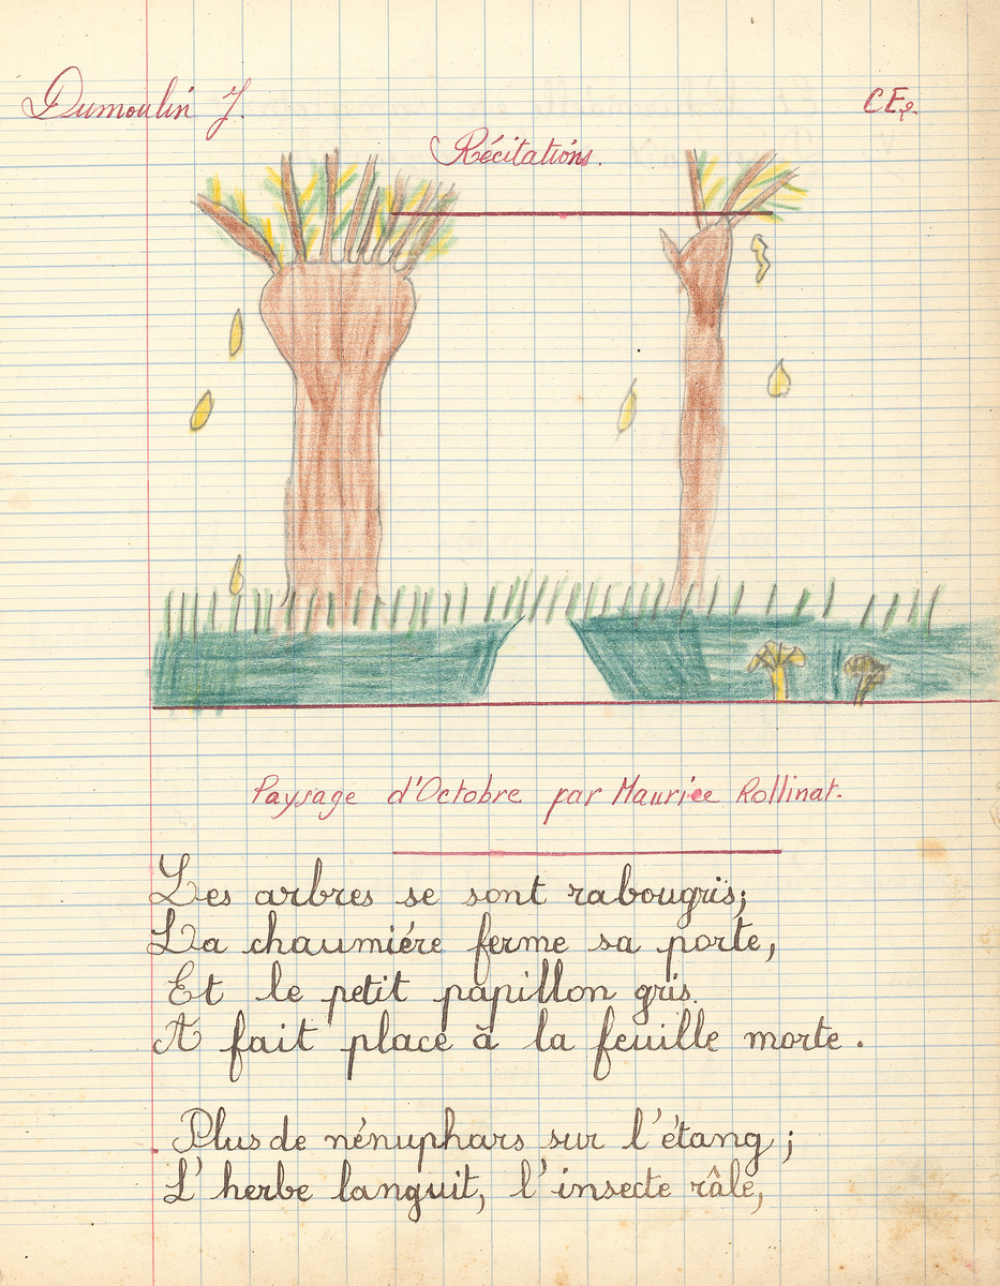 Dumoulin J.
CE2.
Récitations.
Paysage d'Octobre par Maurice Rollinat.
Les arbres se sont rabougris;
La chaumiére ferme sa porte,
Et le petit papillon gris.
A fait place à la feuille morte.
Plus de nénuphars sur l'étang;
L'herbe languit, l'insecte râle,